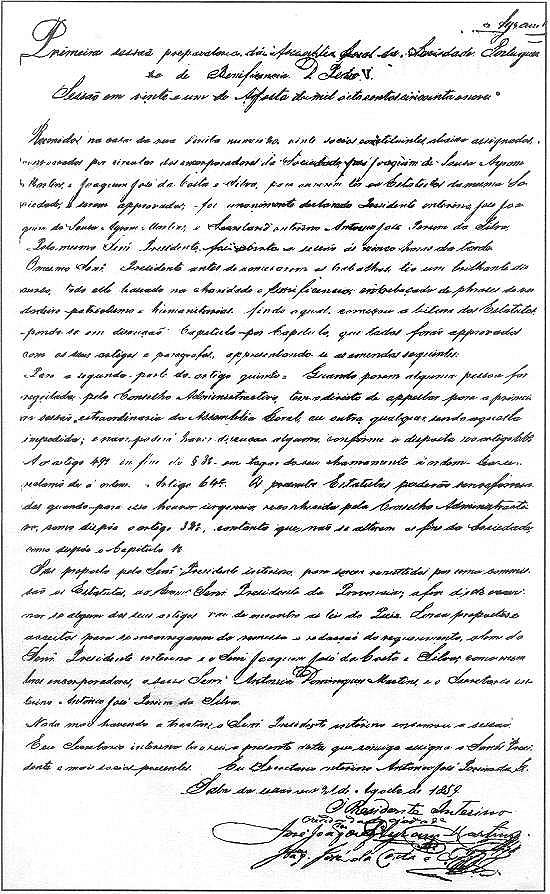 Primeira sessão preparatoria da Assemblea Geral da Sociedade Portugueza
de Beneficencia D. Pedro V.
Sessão em vinte e um de Agosto de mil oito centos cincoenta e nove
Reunidos na casa da rua Direita numero, vinte socios constituintes, abaixo assignados,
convocados por circular dos encorporadores da Sociedade, José Joaquim de Souza Ayram
Martins, e Joaquim José da Costa e Silva, para ouvirem ler os Estatutos da mesma So-
ciedade, e serem approvados, foi unanimente declarado Presidente interino, José Joa-
quim de Souza Ayram Martins, e Secretario interino Antonio José Pereira da Silva.
Pelo mesmo Senr. Presidente, foi aberta a sessão ás cinco horas da tarde.
O mesmo Senr. Presidente antes de começarem os trabalhos, leo um brilhante dis-
curso, todo elle baseado na charidade e beneficencia, entrelaçado de phrases de ver-
dadeiro patriotismo e humanitarias, findo o qual, começou a leitura dos Estatutos,
pondo-se em discussão Capitulo por Capitulo, que todos forão approvados
com os seus artigos e paragrafos, appresentando-se as emendas seguintes:
Para a segunda parte do artigo quinto = Quando porem alguma pessoa for
regeitada pelo Conselho Administractivo, tem o direito de appellar para a primei-
ra sessão, extraordinaria da Assemblea Geral, ou outra qualquer, sendo aquella
impedida; e não poderá haver discussão alguma, conforme o disposto no artigo
Ao artigo 49º in fim do § 3º em lugar de seu chamamento á ordem
á ordem. Artigo 64º. Os presentes Estatutos poderão ser reforma-
dos quando para isso houver urgencia reconhecida pelo Conselho Administracti-
vo, como dispõe o artigo 38º, contanto que, não se alterem os fins da Sociedade,
como dispõe o Capitulo 1º
Foi proposto pelo Senr. Presidente interino, para serem remettidos por uma commis-
são os Estatutos, ao Exmo. Senr. Presidente da Provincia, a fim de exami-
nar se algum dos seus artigos vai de encontro as leis do Paiz. Forão propostos e
acceitos para se encarregarem da remessa e redacção do requerimento, alem do
Senr. Presidente interino e o Senr. Joaquim José da Costa e Silva, como mem-
bros encorporadores, os Senr. Antonio Domingues Martins, e o Secretario in-
terino Antonio José Pereira da Silva.
Nada mais havendo a tractar, o Senr. Presidente interino encerrou a sessão.
Eu Secretario interino lavrei a presente acta que comigo assigna o Senr. Presi-
dente e mais socios presentes. Eu Secretario interino Antonio José Pereira da Sª.
Sala da sessão em 21 de Agosto de 1859.
O Presidente Interino
José Joaqm Ayram Martins
Joaq. José da Costa e Silva